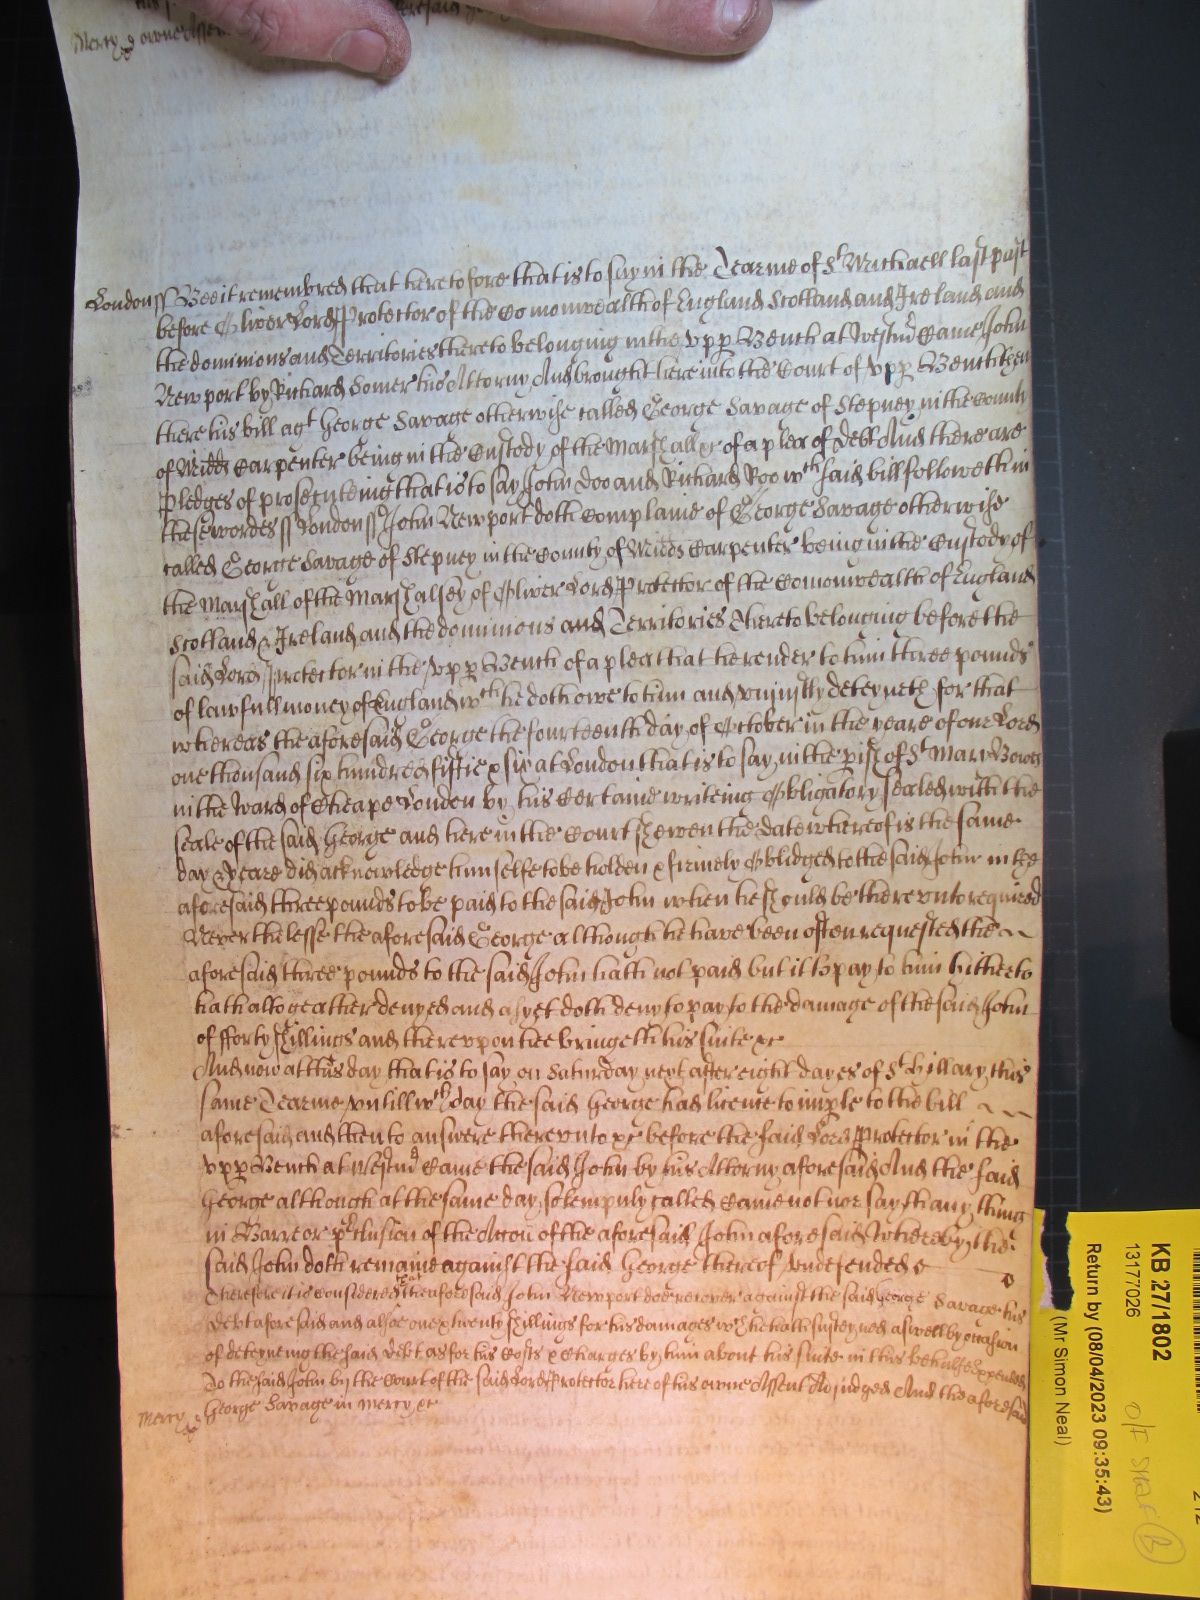 Merry & owne Assent
London ss Bee it remembred that heretofore that is to say in the Tearme of St Michaell last past
before Oliver Lord Protector of the Comonwealth of England Scotland and Ireland and
the dominions and Territories thereto belonging in the upp Bench at Westmr Came John
Newport by Richard Somer his Attorny And brought here into the Court of upp Bench then
there his bill agt George Savage otherwise called George Savage of Stepney in the County
of Midds Carpenter being in the Custody of the Marshall &c of a plea of debt And there are
Pledges of prosecuteing that is to say John Doo and Richard Roo wch said bill followeth in
these wordes ss London ss John Newport doth Complaine of George Savage otherwise
called George Savage of Stepney in the County of Midds Carpenter being in the Custody of
the Marshall of the Marshalsey of Oliver Lord Protector of the Comonwealth of England
Scotland & Ireland and the dominions and Territories thereto belonging before the
said Lord Protector in the upp Bench of a plea that he render to him three pounds
of lawfull money of England wch he doth owe to him and uniustly deteyneth for that
whereas the aforesaid George the fourteenth day of October in the yeare of our Lord
one thousand six hundred fiftie & six at London that is to say in the pish of St Mary Bowe
in the Ward of Cheape London by his Certaine writeing Obligatory sealed with the
seale of the said George and here in the Court shewen the date whereof is the same
day & yeare did acknowledge himselfe to be holden & firmely Obliged to the said John in the
aforesaid three pounds to be paid to the said John when he should be thereunto required
Neverthelesse the aforesaid George although he have been often requested the
aforesaid three pounds to the said John hath not paid but it to pay to him hitherto
hath altogeather denyed and as yet doth deny to pay to the damage of the said John
of fforty shillings and thereupon hee bringeth his suite &c
And now at this day that is to say on Saturday next after eight dayes of St Hillary this
same Tearme untill wch day the said George had licence to imple to the bill
aforesaid and then to answere thereunto &c before the said Lord Protector in the
upp Bench at Westmr Came the said John by his Attorny aforesaid And the said
George although at the same day solempnly called Came not nor sayth any thing
in Barre or pclusion of the Accon of the aforesaid John aforesaid Whereby the
said John doth remaine against the said George thereof undefended
Therefore it is considered that the aforesaid John Newport doe recover against the said George Savage his
debt aforesaid and alsoe one & twenty shillings for his damages wch he hath susteyned aswell by occasion
of deteyneing the said Debt as for his Costs & Charges by him about his suite in this behalfe expended
To the said John by the Court of the said Lord Protector here of his owne Assent Adjudged And the aforesaid
George Savage in mercy &c
Mercy
KB 27/1802
13177026
Return by (08/04/2023 09:35:43)
(Mr Simon Neal)